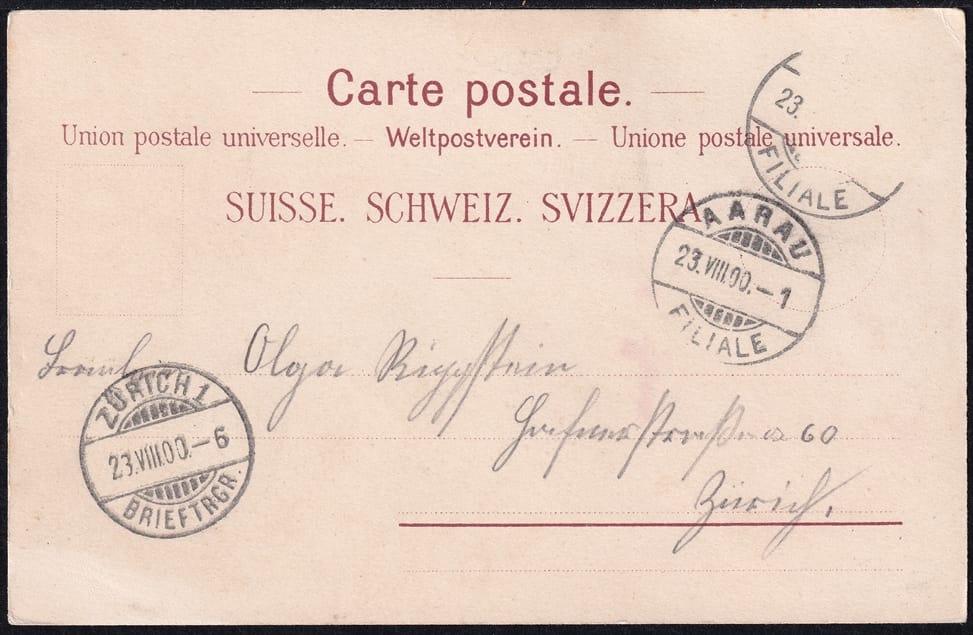 Carte postale.
Union postale universelle. — Weltpostverein. — Unione postale universale.
SUISSE. SCHWEIZ. SVIZZERA.
23.
FILIALE
AARAU
23.VIII.00.–1
FILIALE
Olga Rippstein
60
Zürich.
ZÜRICH 1
23.VIII.00.–6
BRIEFTRGR.